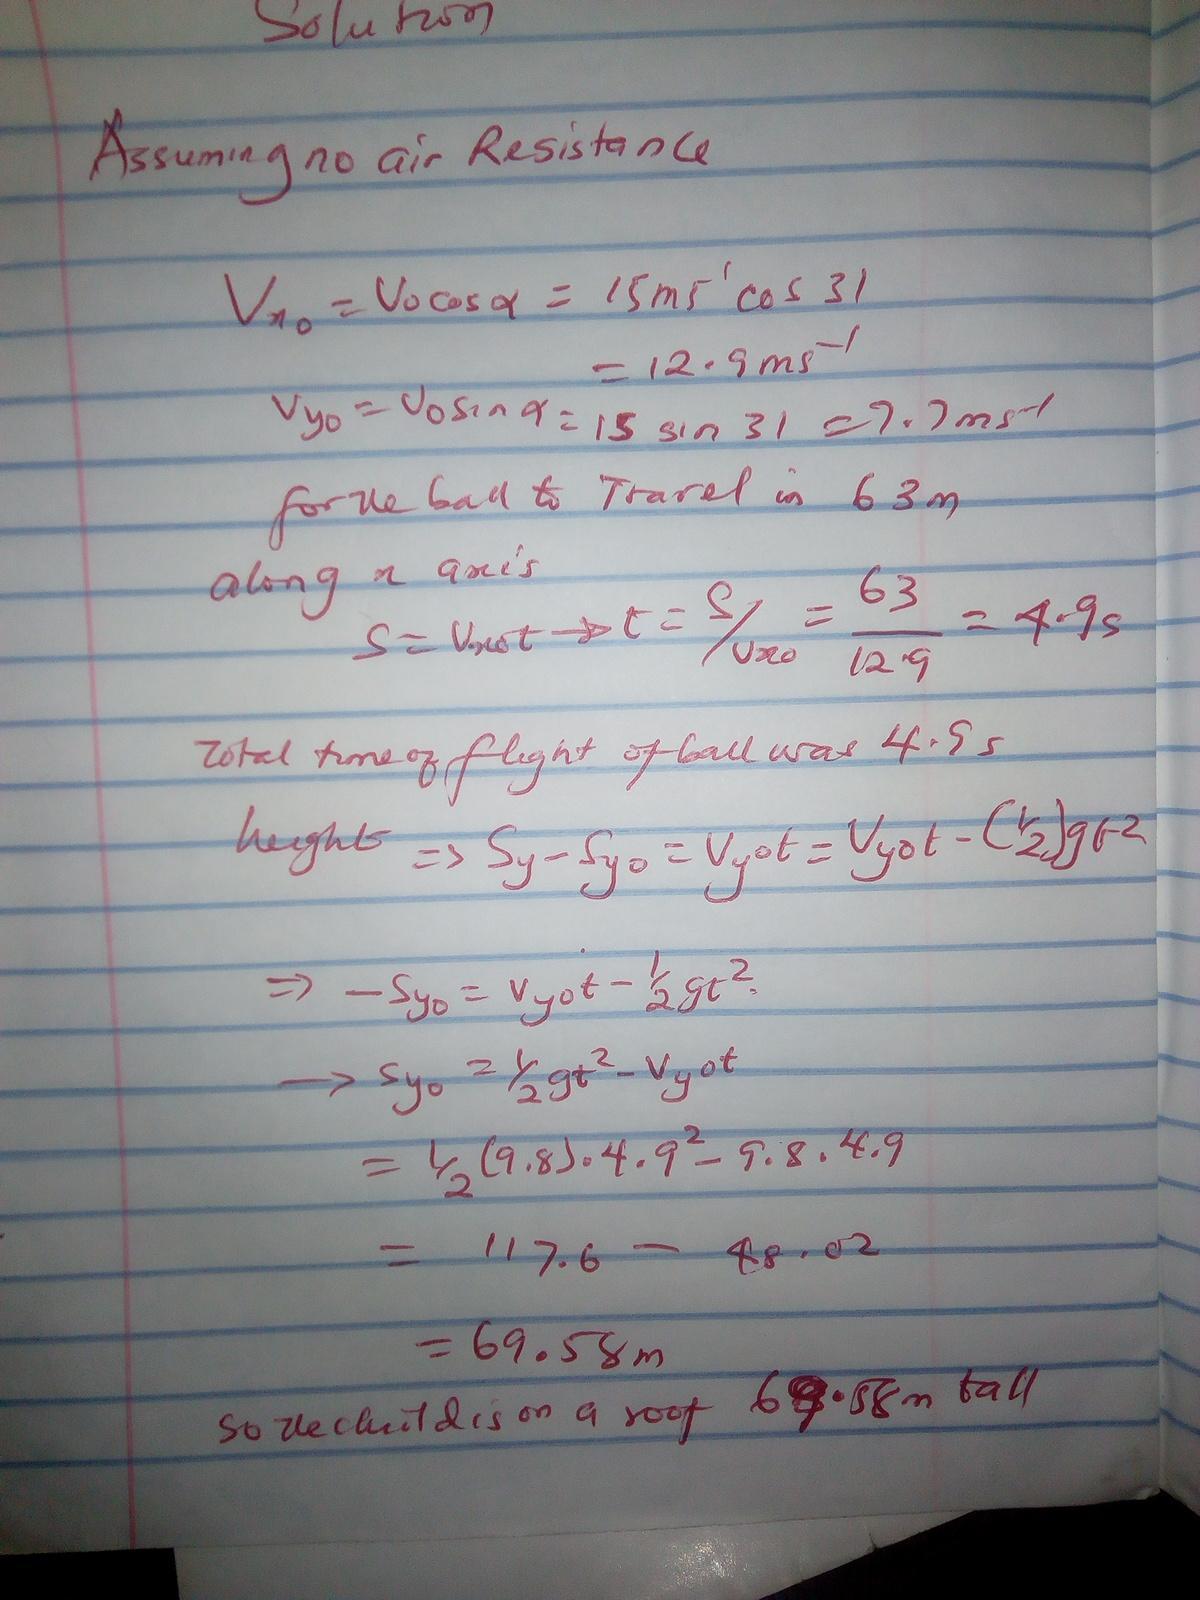 Solution
Assuming no air Resistance
Vx₀ = V₀cosα = 15ms⁻¹ cos 31
= 12.9ms⁻¹
Vy₀ = V₀sinα = 15 sin 31 = 7.7ms⁻¹
for the ball to Travel in 63m
along x axis
S = Vx₀t → t = S/Vx₀ = 63/12.9 = 4.9s
Total time of flight of ball was 4.9s
height => Sy - Sy₀ = Vy₀t = Vy₀t - (1/2)gt²
=> -Sy₀ = Vy₀t - 1/2gt²
→ Sy₀ = 1/2gt² - Vy₀t
= 1/2(9.8).4.9² - 9.8.4.9
= 117.6 - 48.02
= 69.58m
so the child is on a roof 69.58m tall